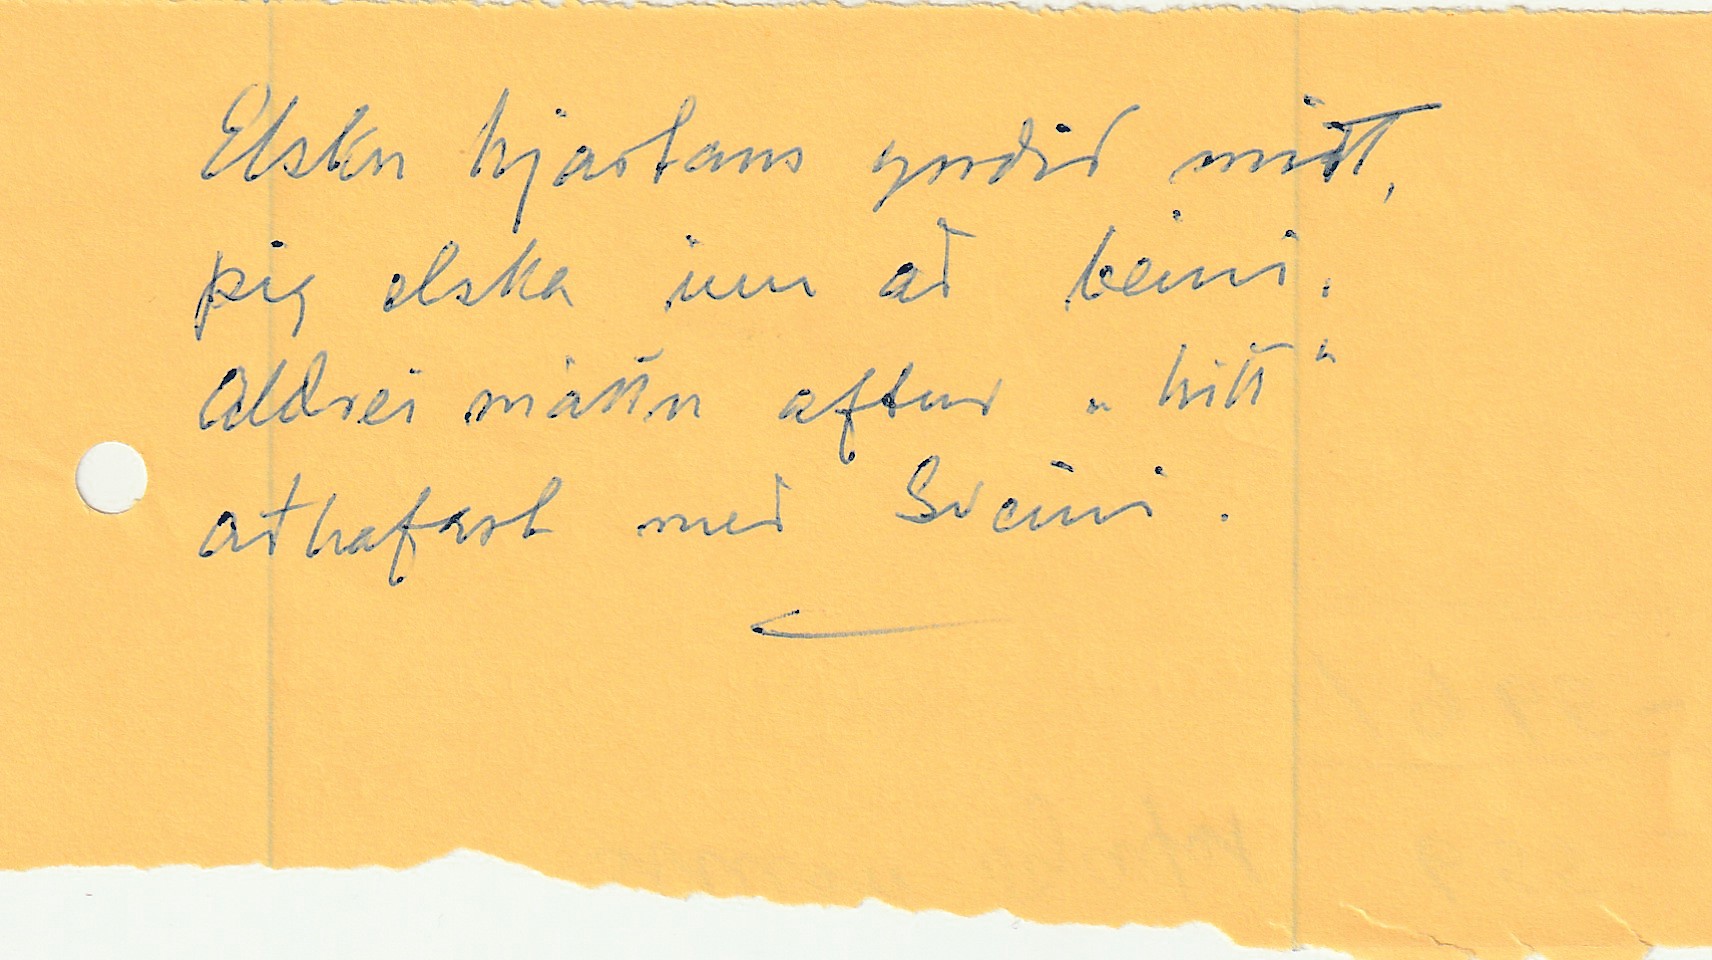 Elsku hjartans yndið mitt,
þig elska inn að beini.
Aldrei máttu aftur „hitt“
aðhafast með Sveini.